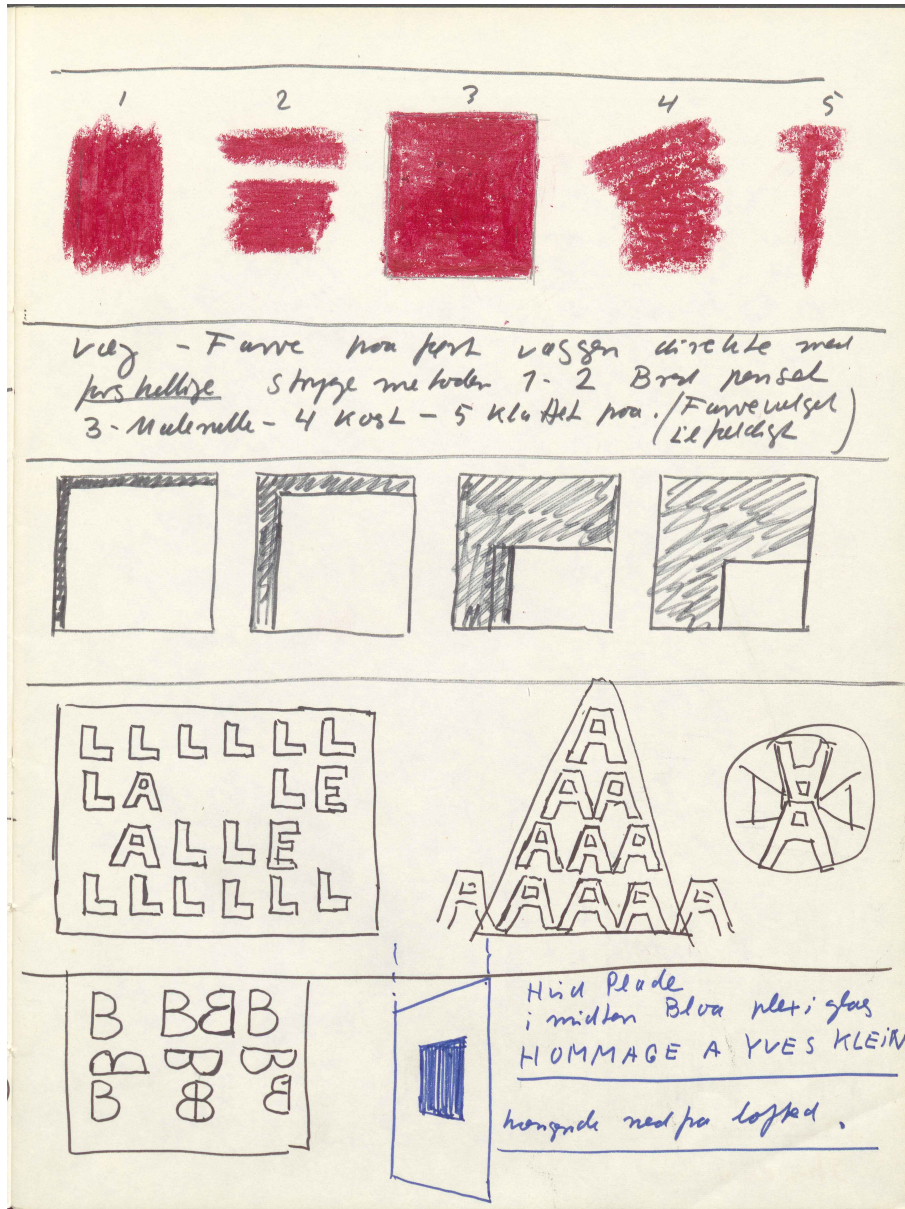 1 2 3 4 5
væg - Farve paa ført væggen direkte med
forskellige stryge metoder 1-2 Bred pensel
3-Malerulle - 4 Kost - 5 Klattet paa. (Farvevalget
tilfældigt)
L L L L L L
L A L E
A L L E
L L L L L L
A
A A
A A A
A A A A A A
A
B B B B
B B B
B B B
Hvid Plade
i midten Blaa plexi glas
HOMMAGE A YVES KLEIN
hængende ned fra loftet.